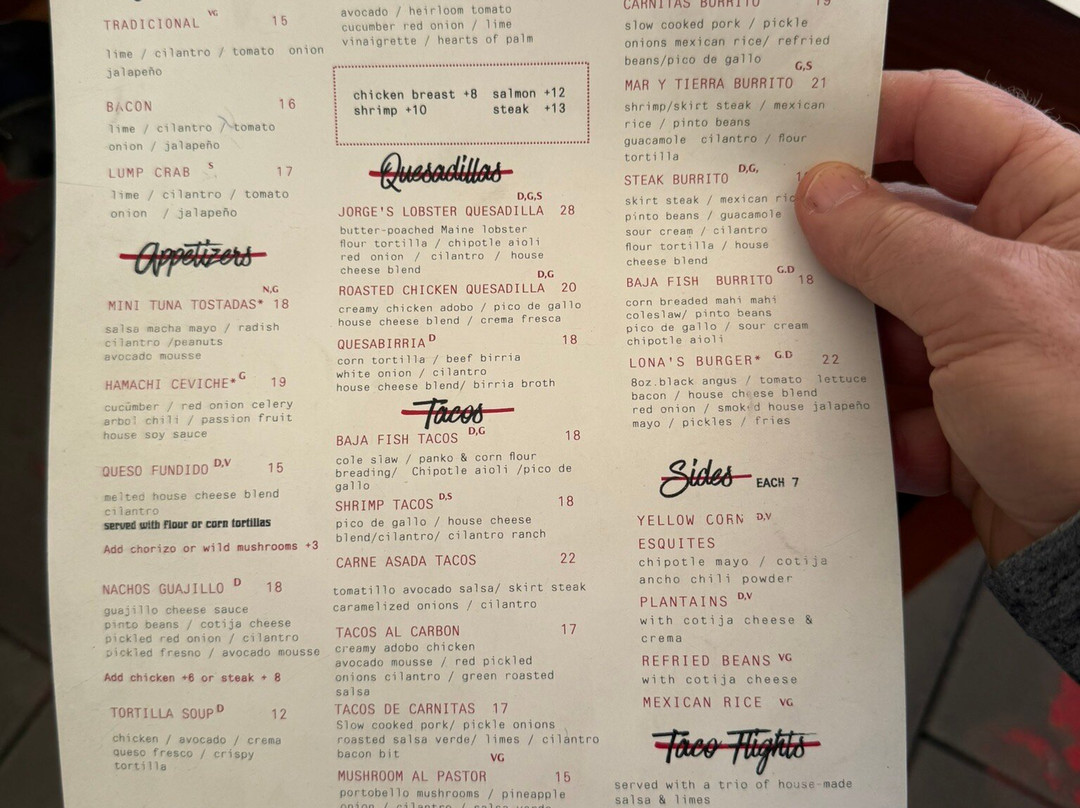 TRADICIONAL VG 15
lime / cilantro / tomato onion
jalapeño
BACON 16
lime / cilantro / tomato
onion / jalapeño
LUMP CRAB S 17
lime / cilantro / tomato
onion / jalapeño
Appetizers
MINI TUNA TOSTADAS* N,G 18
salsa macha mayo / radish
cilantro /peanuts
avocado mousse
HAMACHI CEVICHE* G 19
cucumber / red onion celery
arbol chili / passion fruit
house soy sauce
QUESO FUNDIDO D,V 15
melted house cheese blend
cilantro
served with flour or corn tortillas
Add chorizo or wild mushrooms +3
NACHOS GUAJILLO D 18
guajillo cheese sauce
pinto beans / cotija cheese
pickled red onion / cilantro
pickled fresno / avocado mousse
Add chicken +6 or steak + 8
TORTILLA SOUP D 12
chicken / avocado / crema
queso fresco / crispy
tortilla
avocado / heirloom tomato
cucumber red onion / lime
vinaigrette / hearts of palm
chicken breast +8 salmon +12
shrimp +10 steak +13
Quesadillas
JORGE'S LOBSTER QUESADILLA D,G,S 28
butter-poached Maine lobster
flour tortilla / chipotle aioli
red onion / cilantro / house
cheese blend
ROASTED CHICKEN QUESADILLA D,G 20
creamy chicken adobo / pico de gallo
house cheese blend / crema fresca
QUESABIRRIA D 18
corn tortilla / beef birria
white onion / cilantro
house cheese blend/ birria broth
Tacos
BAJA FISH TACOS D,G 18
cole slaw / panko & corn flour
breading/ Chipotle aioli /pico de
gallo
SHRIMP TACOS D,S 18
pico de gallo / house cheese
blend/cilantro/ cilantro ranch
CARNE ASADA TACOS 22
tomatillo avocado salsa/ skirt steak
caramelized onions / cilantro
TACOS AL CARBON 17
creamy adobo chicken
avocado mousse / red pickled
onions cilantro / green roasted
salsa
TACOS DE CARNITAS 17
Slow cooked pork/ pickle onions
roasted salsa verde/ limes / cilantro
bacon bit
MUSHROOM AL PASTOR VG 15
portobello mushrooms / pineapple
onion / cilantro / salsa verde
CARNITAS BURRITO 19
slow cooked pork / pickle
onions mexican rice/ refried
beans/pico de gallo
MAR Y TIERRA BURRITO G,S 21
shrimp/skirt steak / mexican
rice / pinto beans
guacamole cilantro / flour
tortilla
STEAK BURRITO D,G,
skirt steak / mexican
pinto beans / guacamole
sour cream / cilantro
flour tortilla / house
cheese blend
BAJA FISH BURRITO G.D 18
corn breaded mahi mahi
coleslaw/ pinto beans
pico de gallo / sour cream
chipotle aioli
LONA'S BURGER* G.D 22
8oz.black angus / tomato lettuce
bacon / house cheese blend
red onion / smoked house jalapeño
mayo / pickles / fries
Sides EACH 7
YELLOW CORN D,V
ESQUITES
chipotle mayo / cotija
ancho chili powder
PLANTAINS D,V
with cotija cheese &
crema
REFRIED BEANS VG
with cotija cheese
MEXICAN RICE VG
Taco Flights
served with a trio of house-made
salsa & limes